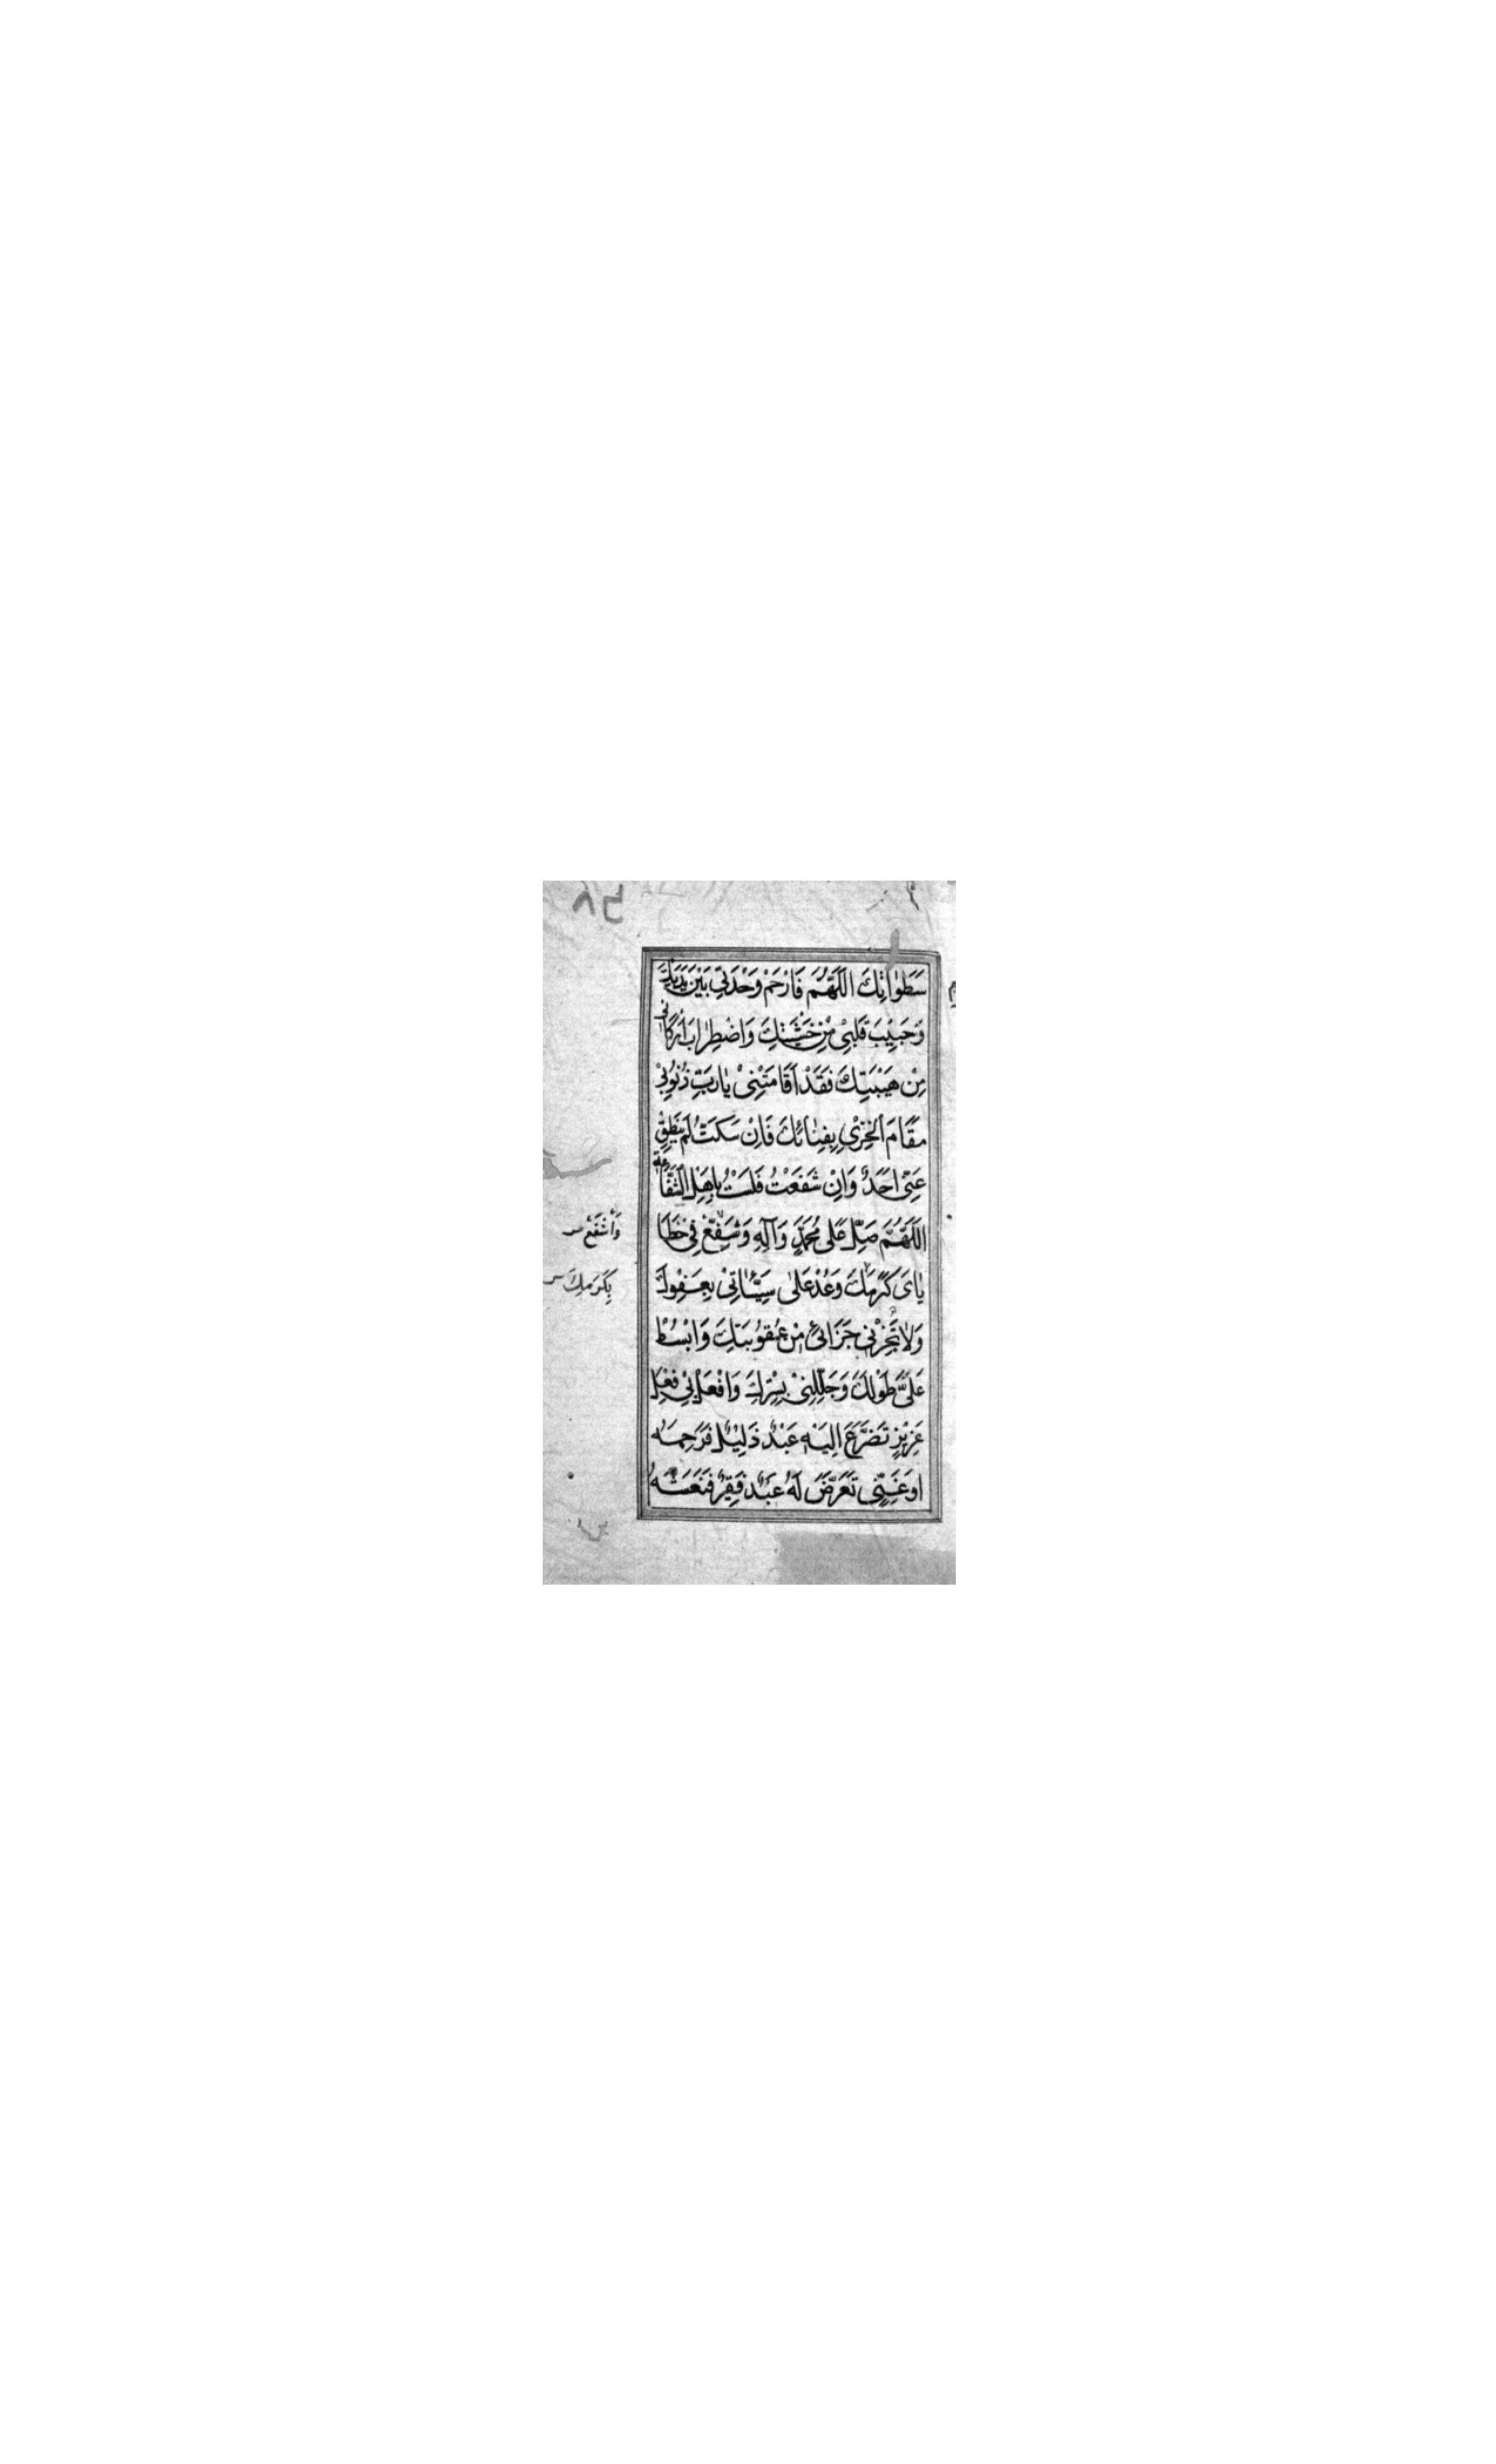 سَطَوٰاتِكَ اللّٰهُمَّ فَارْحَمْ وَحْدَتِي بَيْنَ يَدَيْكَ
وَحَبِيبَ قَلْبِيْ مِنْ خَشْيَتِكَ وَاضْطِرٰابَ اَرْكٰانِي
مِنْ هَيْبَتِكَ فَقَدْ اَقَامَتْنِيْ يٰا رَبِّ ذُنُوْبِيْ
مَقَامَ الْخِزْيِ بِفِنٰائِكَ فَاِنْ سَكَتُّ لَمْ يَنْطِقْ
عَنِّي اَحَدٌ وَاِنْ شَفَعْتُ فَلَسْتُ بِاَهْلِ الشَّفٰاعَةِ
اَللّٰهُمَّ صَلِّ عَلٰى مُحَمَّدٍ وَآلِهِ وَشَفِّعْ فِي خَطَا
وَاشْفَعْ
يٰايَ كَرَمَكَ وَعُدْ عَلٰى سَيِّئٰاتِيْ بِعَفْوِكَ
بِكَرَمِكَ
وَلٰا تَجْزِنِي جَزَائِيْ مِنْ عُقُوْبَتِكَ وَابْسُطْ
عَلَيَّ طَوْلَكَ وَجَلِّلْنِيْ بِسِتْرِكَ وَافْعَلْ بِي فِعْلَ
عَزِيْزٍ تَضَرَّعَ اِلَيْهِ عَبْدٌ ذَلِيْلٌ فَرَحِمَهُ
اوْ غَنِيٍّ تَعَرَّضَ لَهُ عَبْدٌ فَقِيْرٌ فَنَعَشَهُ